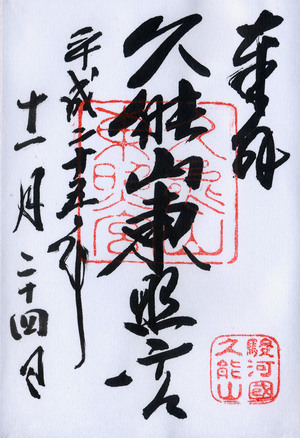 奉拝
久能山東照宮
平成二十五年
十一月二十四日
久能山東照宮
駿河國久能山